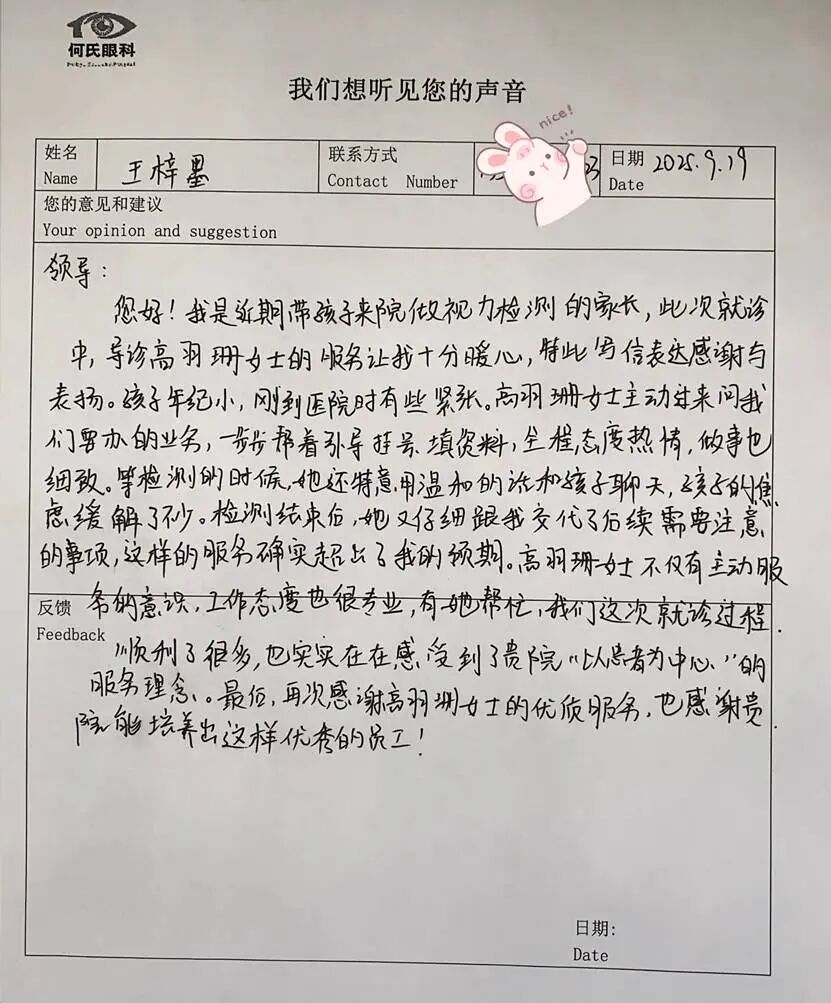 何氏眼科
我们想听见您的声音
nice!
姓名 王梓墨 联系方式 日期 2025.9.19
Name Contact Number 3 Date
您的意见和建议
Your opinion and suggestion
领导：
您好！我是近期带孩子来院做视力检测的家长，此次就诊
中，导诊高羽珊女士的服务让我十分暖心，特此写信表达感谢与
表扬。孩子年纪小，刚到医院时有些紧张。高羽珊女士主动过来问我
们要办的业务，一步步帮着引导挂号、填资料，全程态度热情，做事也
细致。等检测的时候，她还特意用温和的话和孩子聊天，孩子的焦
虑缓解了不少。检测结束后，她又仔细跟我交代了后续需要注意
的事项，这样的服务确实超出了我的预期。高羽珊女士不仅有主动服
反馈 务的意识，工作态度也很专业，有她帮忙，我们这次就诊过程
Feedback
顺利了很多，也实实在在感受到了贵院“以患者为中心”的
服务理念。最后，再次感谢高羽珊女士的优质服务，也感谢贵
院能培养出这样优秀的员工！
日期:
Date